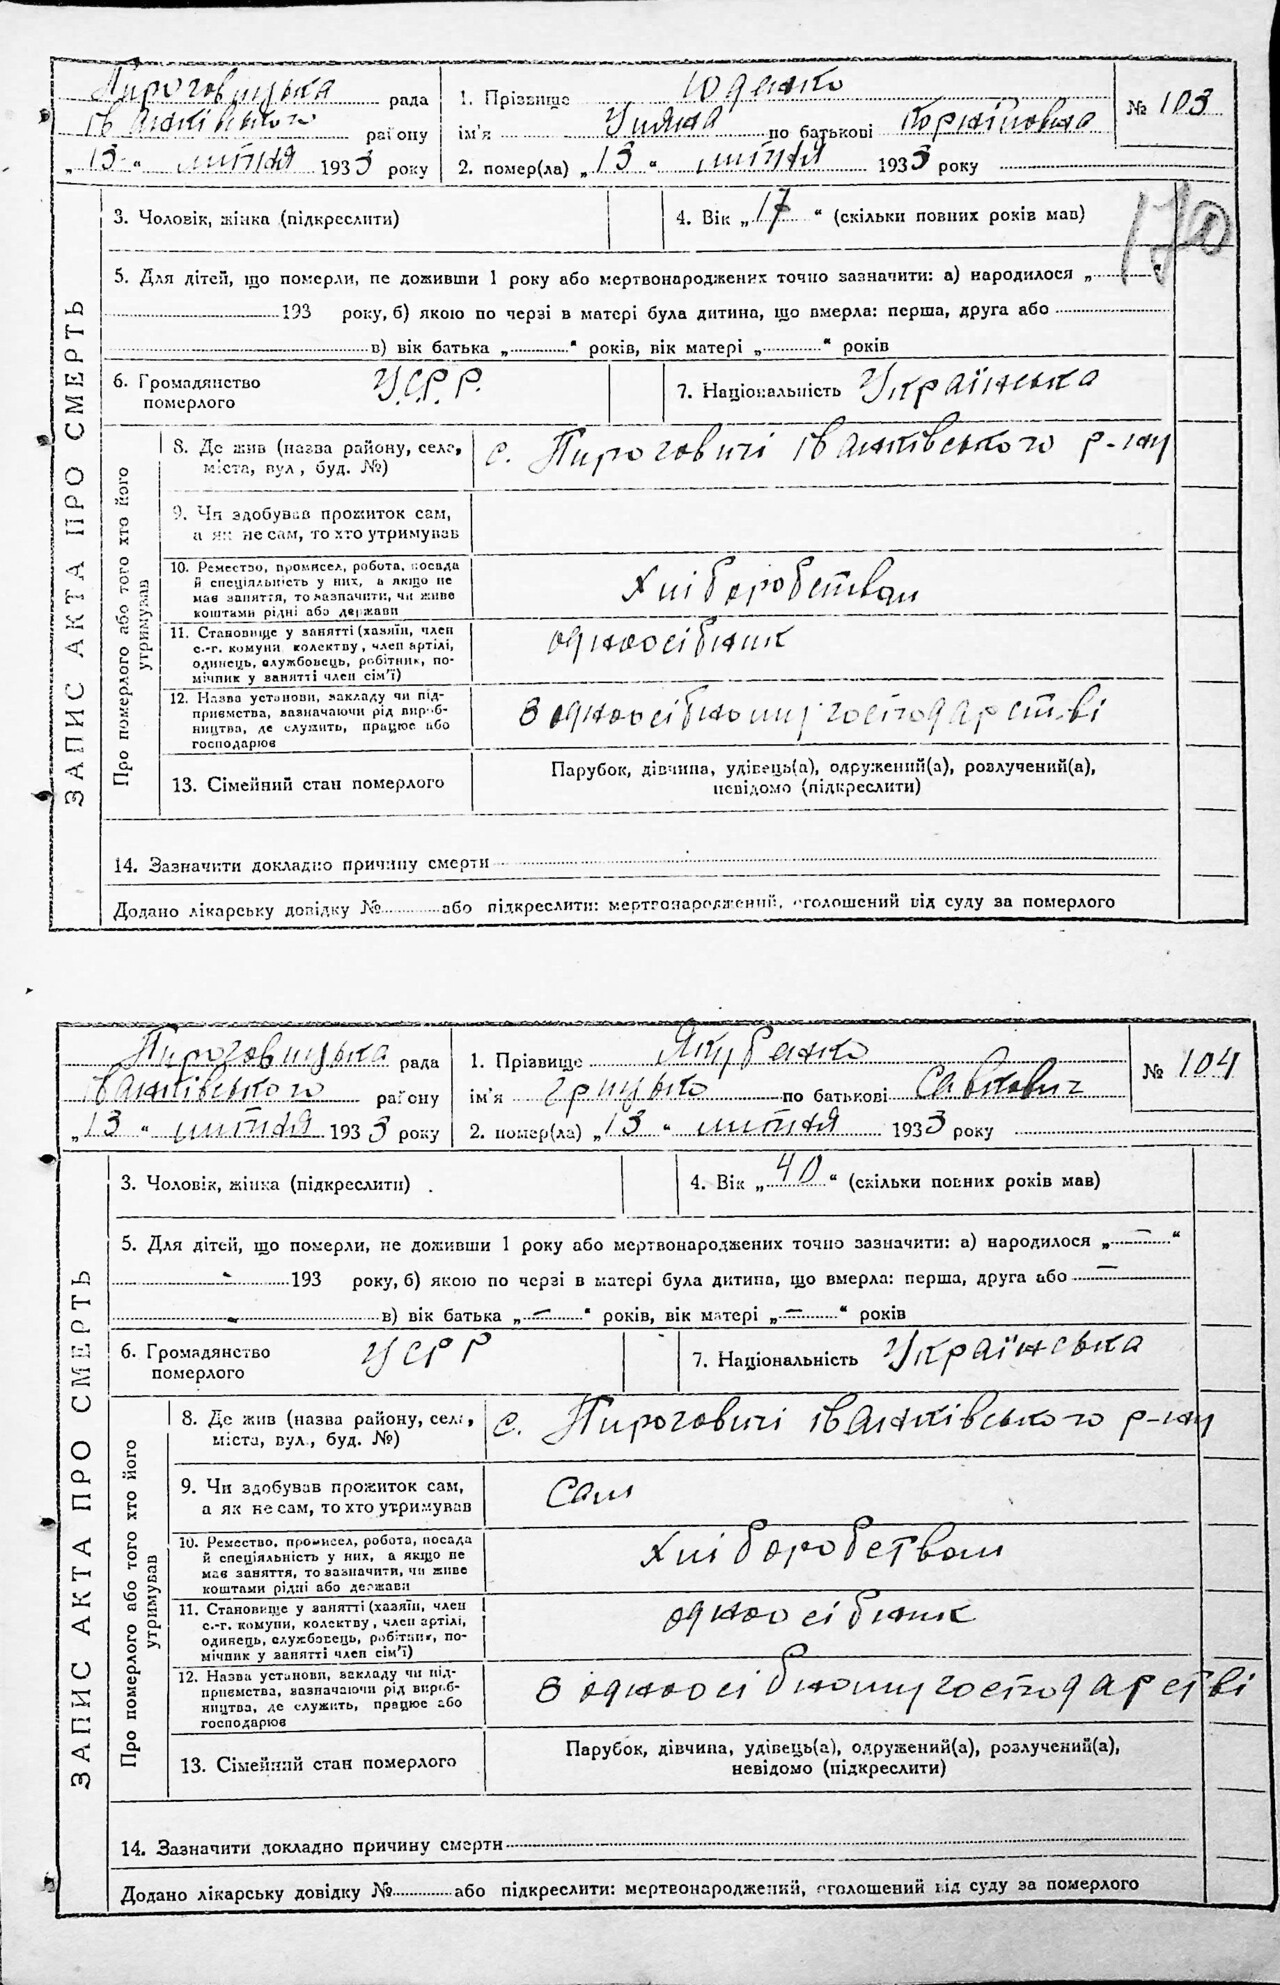 Пироговицька рада
Іванківського району
„13“ липня 1933 року
1. Прізвище Юденко
ім'я Уляна по батькові Корніївна
2. помер(ла) „13“ липня 1933 року
№ 103
170
ЗАПИС АКТА ПРО СМЕРТЬ
3. Чоловік, жінка (підкреслити)
4. Вік „17“ (скільки повних років мав)
5. Для дітей, що померли, не доживши 1 року або мертвонароджених точно зазначити: а) народилося „ “
193 року, б) якою по черзі в матері була дитина, що вмерла: перша, друга або
в) вік батька „ “ років, вік матері „ “ років
6. Громадянство
померлого
У.С.Р.Р.
7. Національність Українська
Про померлого або того хто його
утримував
8. Де жив (назва району, села,
міста, вул., буд. №)
с. Пироговичі Іванківського р-ну
9. Чи здобував прожиток сам,
а як не сам, то хто утримував
10. Ремество, промисел, робота, посада
й спеціяльність у них, а якщо не
мав заняття, то зазначити, чи живе
коштами рідні або держави
Хліборобством
11. Становище у занятті (хазяїн, член
с.-г. комуни, колективу, член артілі,
одинець, службовець, робітник, по-
мічник у занятті член сім'ї)
одноосібник
12. Назва установи, закладу чи під-
приємства, зазначаючи рід вироб-
ництва, де служить, працює або
господарює
в одноосібному господарстві
13. Сімейний стан померлого
Парубок, дівчина, удівець(а), одружений(а), розлучений(а),
невідомо (підкреслити)
14. Зазначити докладно причину смерти
Додано лікарську довідку № або підкреслити: мертвонароджений, оголошений від суду за померлого
Пироговицька рада
Іванківського району
„13“ липня 1933 року
1. Прізвище Якубенко
ім'я Грицько по батькові Савкович
2. помер(ла) „13“ липня 1933 року
№ 104
ЗАПИС АКТА ПРО СМЕРТЬ
3. Чоловік, жінка (підкреслити)
4. Вік „40“ (скільки повних років мав)
5. Для дітей, що померли, не доживши 1 року або мертвонароджених точно зазначити: а) народилося „—“
- 193 року, б) якою по черзі в матері була дитина, що вмерла: перша, друга або —
- в) вік батька „—“ років, вік матері „—“ років
6. Громадянство
померлого
УСРР
7. Національність Українська
Про померлого або того хто його
утримував
8. Де жив (назва району, села,
міста, вул., буд. №)
с. Пироговичі Іванківського р-ну
9. Чи здобував прожиток сам,
а як не сам, то хто утримував
Сам
10. Ремество, промисел, робота, посада
й спеціяльність у них, а якщо не
мав заняття, то зазначити, чи живе
коштами рідні або держави
Хліборобством
11. Становище у занятті (хазяїн, член
с.-г. комуни, колективу, член артілі,
одинець, службовець, робітник, по-
мічник у занятті член сім'ї)
одноосібник
12. Назва установи, закладу чи під-
приємства, зазначаючи рід вироб-
ництва, де служить, працює або
господарює
в одноосібному господарстві
13. Сімейний стан померлого
Парубок, дівчина, удівець(а), одружений(а), розлучений(а),
невідомо (підкреслити)
14. Зазначити докладно причину смерти
Додано лікарську довідку № або підкреслити: мертвонароджений, оголошений від суду за померлого